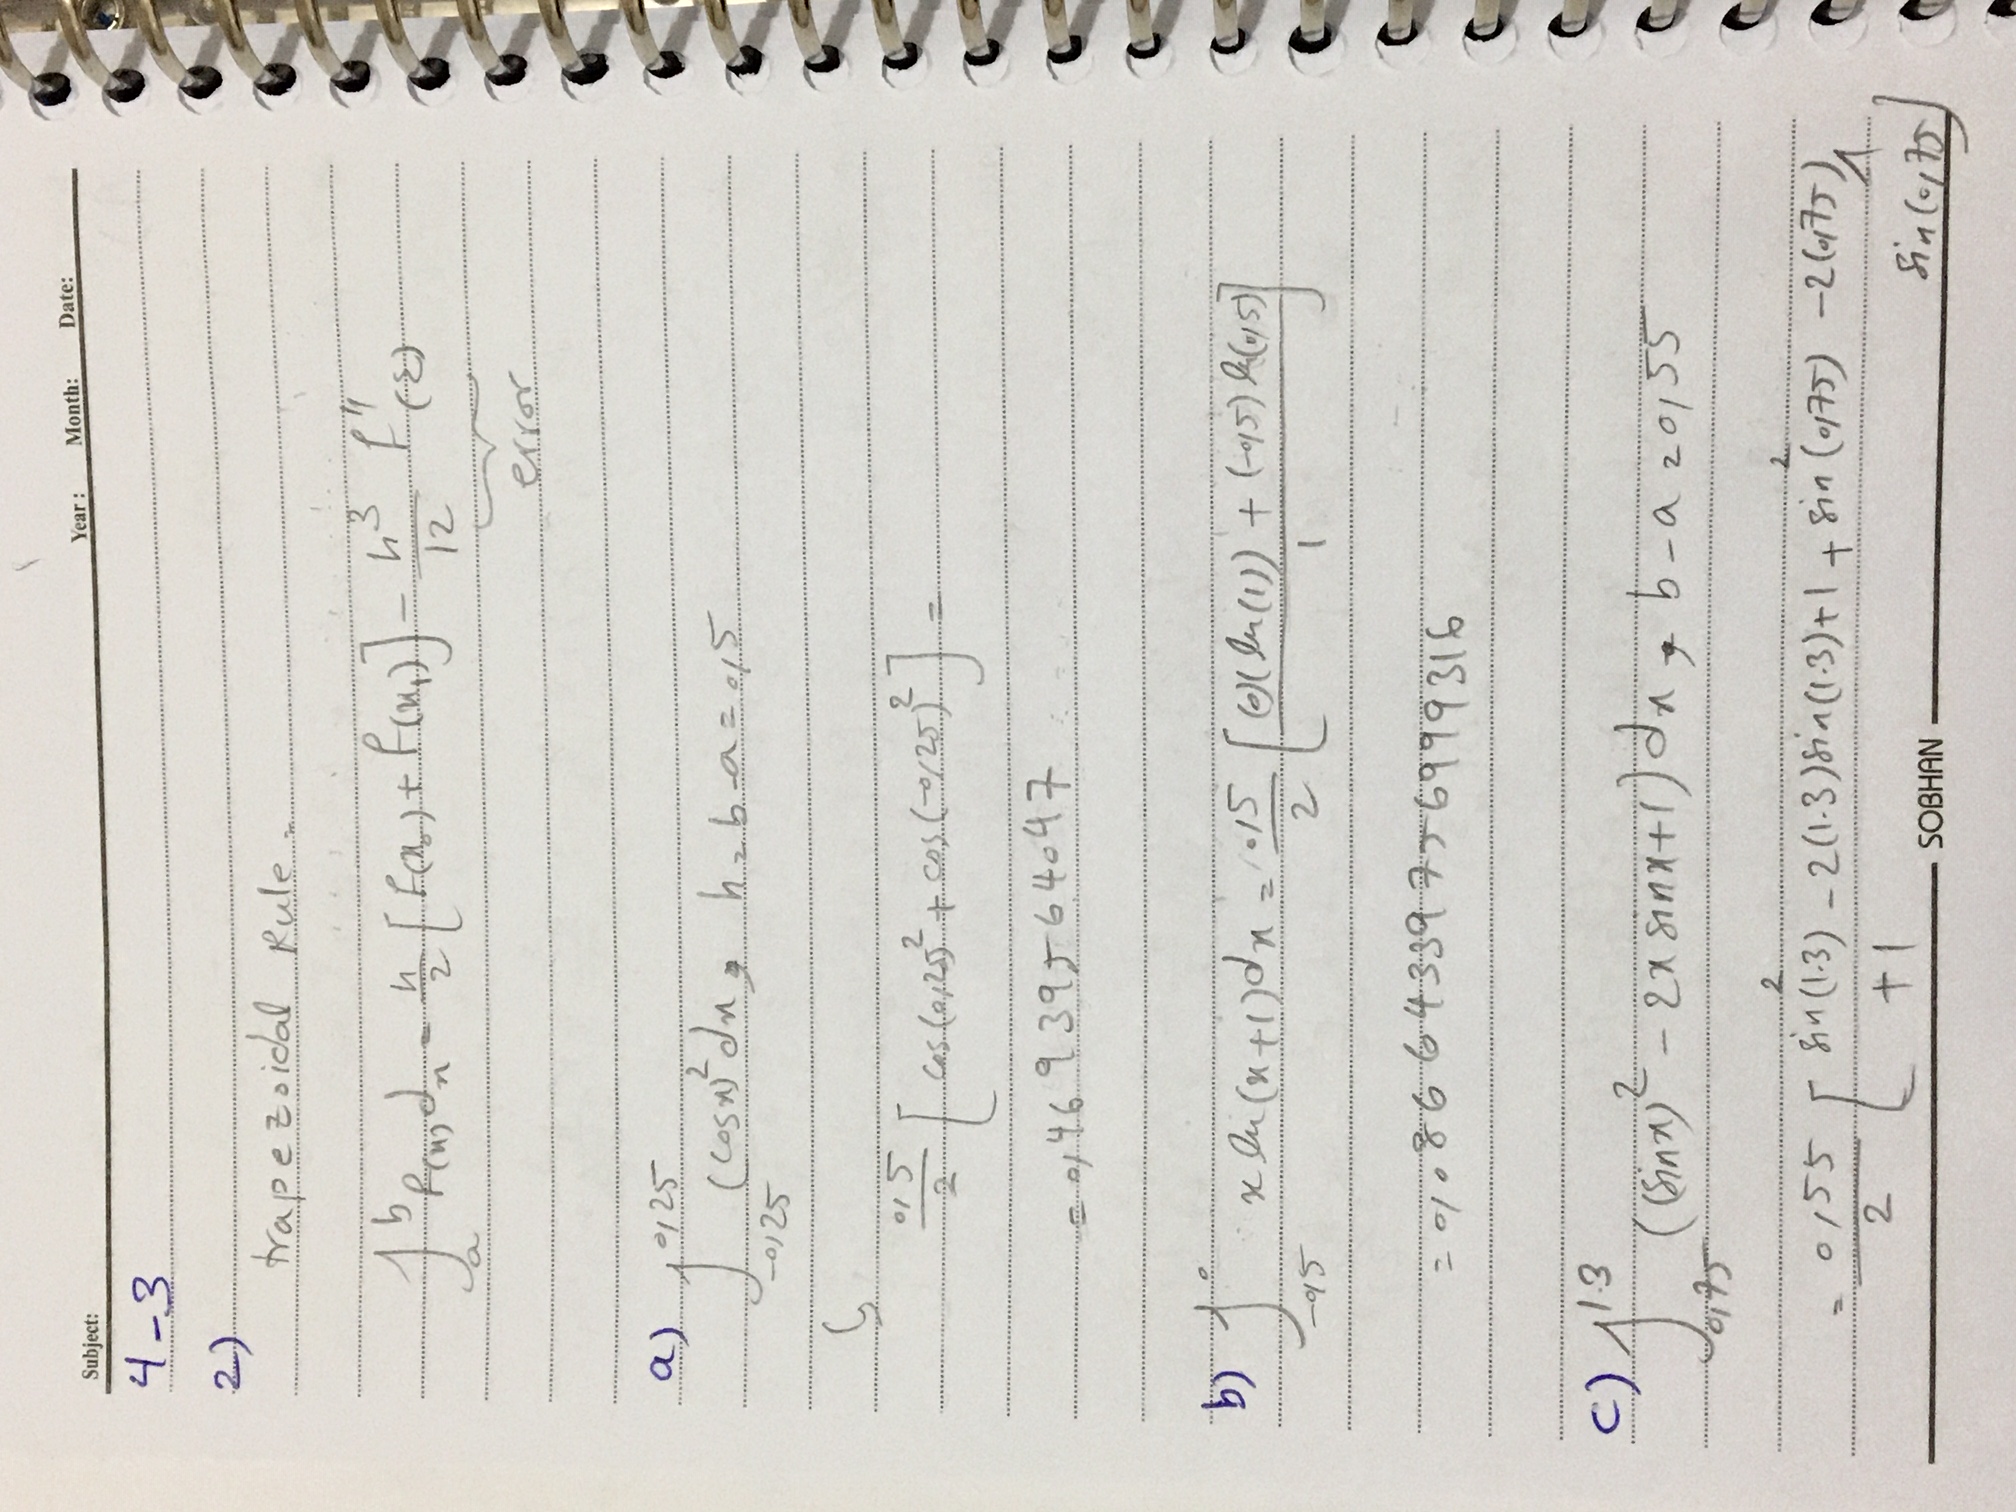 Subject: Year : Month: Date:
4-3
2)
trapezoidal Rule =
∫_a^b f(x) dx = h/2 [f(x₀) + f(x₁)] - h³/12 f''(ξ)
error
a) ∫_{-0,25}^{0,25} (cosx)² dx, h = b-a = 0,5
↳
0,5/2 [cos(0,25)² + cos(-0,25)²] =
= 0,46939564047
b) ∫_{-0,5}^{0} x ln(x+1) dx = 0,5/2 [((0)(ln(1)) + (-0,5) ln(0,5))/1]
= 0,0866433975699931 6
c) ∫_{0,75}^{1.3} ((sinx)² - 2x sinx+1) dx, b-a = 0,55
= 0,55/2 [sin²(1.3) - 2(1.3)sin(1.3)+1 + sin²(0,75) - 2(0,75)
+1
sin(0,75)]
SOBHAN